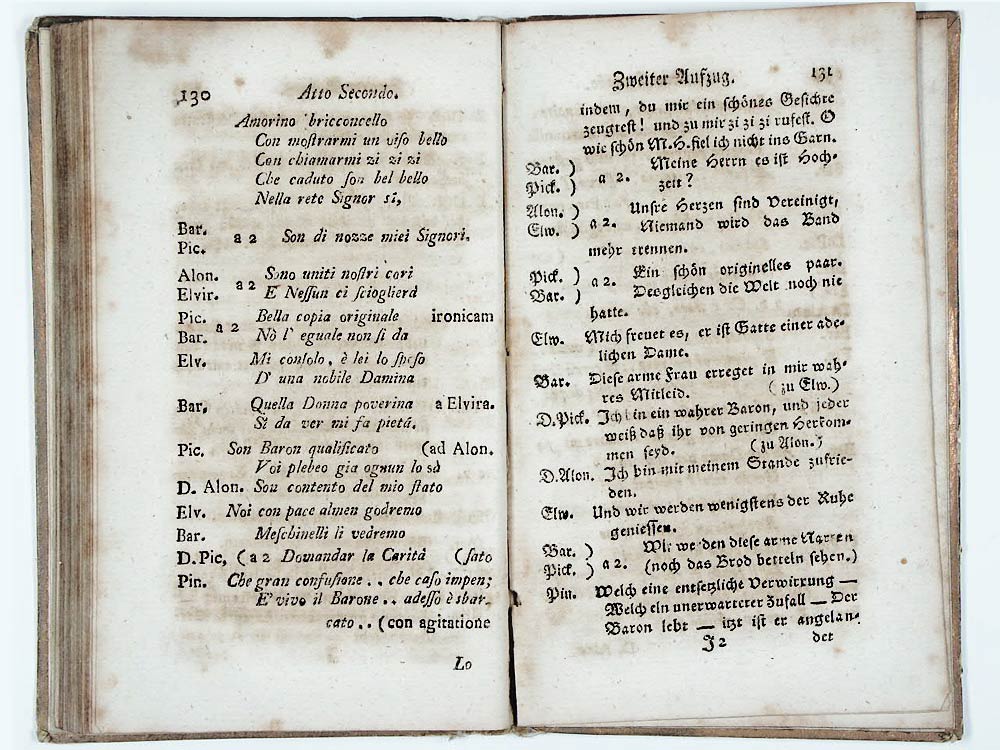 130 Atto Secondo.
Amorino bricconcello
Con moſtrarmi un viſo bello
Con chiamarmi zi zi zi
Che caduto ſon bel bello
Nella rete Signor sì,
Bar.
Pic. a 2 Son di nozze miei Signori.
Alon. Sono uniti noſtri cori
Elvir. a 2 E Neſſun ci ſcioglierà
Pic. Bella copia originale ironicam
Bar. a 2 Nò l' eguale non ſi da
Elv. Mi conſolo, è lei lo ſpoſo
D' una nobile Damina
Bar, Quella Donna poverina a Elvira.
Sì da ver mi fa pietà.
Pic. Son Baron qualificato (ad Alon.
Voi plebeo gia ognun lo sà
D. Alon. Son contento del mio ſtato
Elv. Noi con pace almen godremo
Bar. Meſchinelli li vedremo
D. Pic, ( a 2 Domandar la Carità (ſato
Pin. Che gran confuſione . . che caſo impen;
E' vivo il Barone . . adeſſo è sbar-
cato . . (con agitatione
Lo
Zweiter Aufzug. 131
indem, du mir ein ſchönes Geſichte
zeugteſt! und zu mir zi zi zi rufeſt. O
wie ſchön M. H. fiel ich nicht ins Garn.
Bar. ) Meine Herrn es iſt Hoch-
Pick. ) a 2. zeit?
Alon. ) Unſre Herzen ſind Vereinigt,
Elw. ) a 2. Niemand wird das Band
mehr trennen.
Pick. ) Ein ſchön originelles paar.
Bar. ) a 2. Desgleichen die Welt noch nie
hatte.
Elw. Mich freuet es, er iſt Gatte einer ade-
lichen Dame.
Bar. Dieſe arme Frau erreget in mir wah-
res Mitleid. (zu Elw.)
D. Pick. Ich bin ein wahrer Baron, und jeder
weiß daß ihr von geringen Herkom-
men ſeyd. (zu Alon.)
D. Alon. Ich bin mit meinem Stande zufrie-
den.
Elw. Und wir werden wenigſtens der Ruhe
genieſſen.
Bar. ) Wir werden dieſe arme Narren
Pick. ) a 2. (noch das Brod betteln ſehen.)
Pin. Welch eine entſetzliche Verwirrung —
Welch ein unerwarteter Zufall — Der
Baron lebt — itzt iſt er angelan-
J 2 det